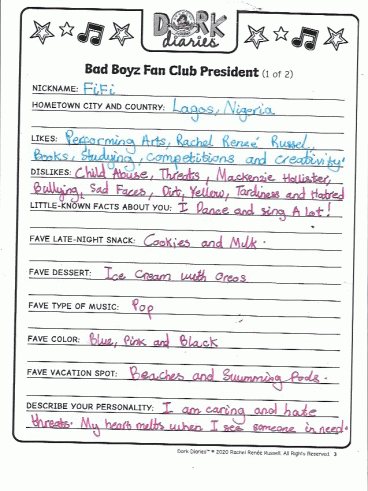 DORK
diaries
Bad Boyz Fan Club President (1 of 2)
NICKNAME: FiFi
HOMETOWN CITY AND COUNTRY: Lagos, Nigeria
LIKES: Performing Arts, Rachel Reneé Russel,
Books, Studying, competitions and creativity.
DISLIKES: Child Abuse, Threats, Mackenzie Hollister,
Bullying, Sad Faces, Dirt, Yellow, Tardiness and Hatred
LITTLE-KNOWN FACTS ABOUT YOU: I Dance and sing A lot!
FAVE LATE-NIGHT SNACK: Cookies and Milk.
FAVE DESSERT: Ice Cream with Oreos
FAVE TYPE OF MUSIC: Pop
FAVE COLOR: Blue, Pink and Black
FAVE VACATION SPOT: Beaches and Swimming Pools.
DESCRIBE YOUR PERSONALITY: I am caring and hate
threats. My heart melts when I see someone in need.
Dork Diaries™ © 2020 Rachel Renée Russell. All Rights Reserved. 3